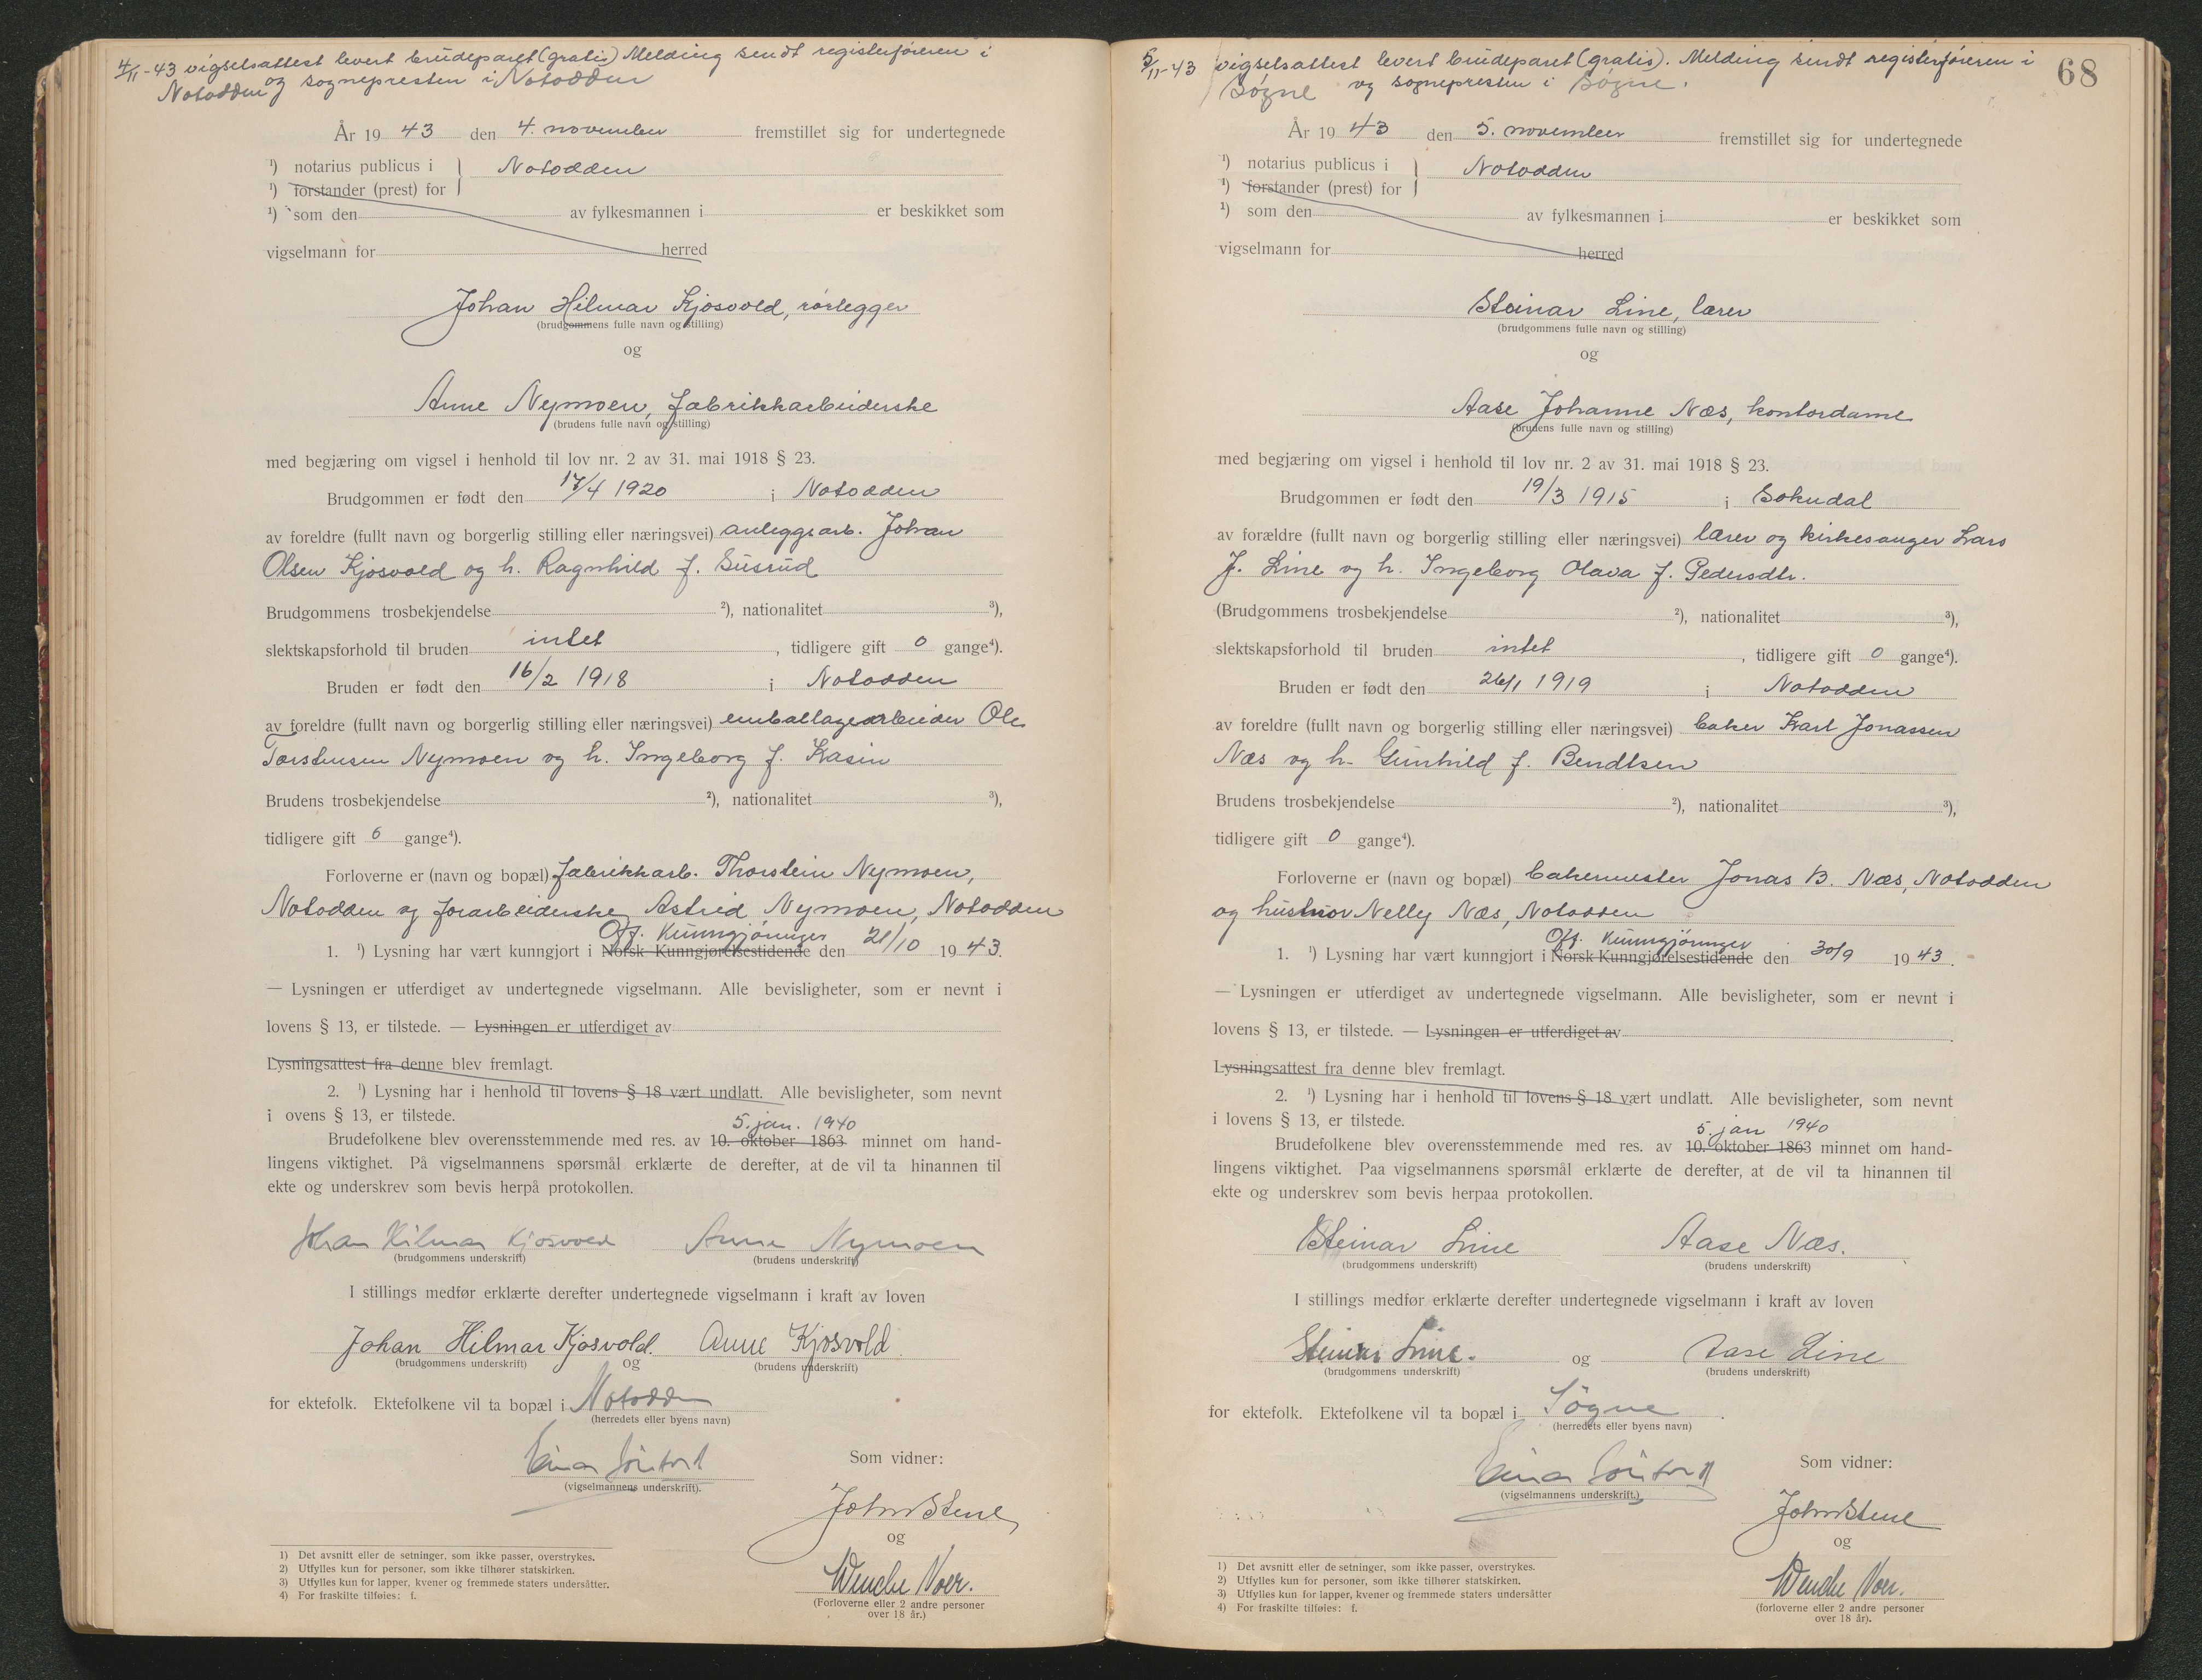 4/11-43 vigselsattest levert brudeparet (gratis) Melding sendt registerføreren i
Notodden og sognepresten i Notodden
År 19 43 den 4. november fremstillet sig for undertegnede
¹) notarius publicus i } Notodden
¹) forstander (prest) for
¹) som den av fylkesmannen i er beskikket som
vigselmann for herred
Johan Hilmar Kjosvold, rørlegger
(brudgommens fulle navn og stilling)
og
Anne Nymoen, fabrikkarbeiderske
(brudens fulle navn og stilling)
med begjæring om vigsel i henhold til lov nr. 2 av 31. mai 1918 § 23.
Brudgommen er født den 17/4 1920 i Notodden
av foreldre (fullt navn og borgerlig stilling eller næringsvei) anleggsarb. Johan
Olsen Kjosvold og h. Ragnhild f. Susrud
Brudgommens trosbekjendelse ²), nationalitet ³),
slektskapsforhold til bruden intet, tidligere gift 0 gange⁴).
Bruden er født den 16/2 1918 i Notodden
av foreldre (fullt navn og borgerlig stilling eller næringsvei) emballagearbeider Ole
Torstensen Nymoen og h. Ingeborg f. Kasin
Brudens trosbekjendelse ²), nationalitet ³),
tidligere gift 0 gange⁴).
Forloverne er (navn og bopæl) fabrikkarb. Thorstein Nymoen,
Notodden og forarbeiderske Astrid Nymoen, Notodden
Off. Kunngjøringer
1. ¹) Lysning har vært kunngjort i Norsk Kunngjørelsestidende den 21/10 19 43.
— Lysningen er utferdiget av undertegnede vigselmann. Alle bevisligheter, som er nevnt i
lovens § 13, er tilstede. — Lysningen er utferdiget av
Lysningsattest fra denne blev fremlagt.
2. ¹) Lysning har i henhold til lovens § 18 vært undlatt. Alle bevisligheter, som nevnt
i ovens § 13, er tilstede.
5. jan. 1940
Brudefolkene blev overensstemmende med res. av 10. oktober 1863 minnet om hand-
lingens viktighet. På vigselmannens spørsmål erklærte de derefter, at de vil ta hinannen til
ekte og underskrev som bevis herpå protokollen.
Johan Hilmar Kjosvold Anne Nymoen
(brudgommens underskrift) (brudens underskrift)
I stillings medfør erklærte derefter undertegnede vigselmann i kraft av loven
Johan Hilmar Kjosvold. Anne Kjosvold
(brudgommens underskrift) og (brudens underskrift)
for ektefolk. Ektefolkene vil ta bopæl i Notodden
(herredets eller byens navn)
Einar
(vigselmannens underskrift).
Som vidner:
John Stene
og
Wenche Voer.
(Forloverne eller 2 andre personer
over 18 år.)
1) Det avsnitt eller de setninger, som ikke passer, overstrykes.
2) Utfylles kun for personer, som ikke tilhører statskirken.
3) Utfylles kun for lapper, kvener og fremmede staters undersåtter.
4) For fraskilte tilføies: f.
68
5/11-43 vigselsattest levert brudeparet (gratis). Melding sendt registerføreren i
Søgne og sognepresten i Søgne.
År 19 43 den 5. november fremstillet sig for undertegnede
¹) notarius publicus i } Notodden
¹) forstander (prest) for
¹) som den av fylkesmannen i er beskikket som
vigselmann for herred
Steinar Line, lærer
(brudgommens fulle navn og stilling)
og
Aase Johanne Næs, kontordame
(brudens fulle navn og stilling)
med begjæring om vigsel i henhold til lov nr. 2 av 31. mai 1918 § 23.
Brudgommen er født den 19/3 1915 i Sokndal
av forældre (fullt navn og borgerlig stilling eller næringsvei) lærer og kirkesanger Lars
J. Line og h. Ingeborg Olava f. Pedersdtr.
(Brudgommens trosbekjendelse ²), nationalitet ³),
slektskapsforhold til bruden intet, tidligere gift 0 gange⁴).
Bruden er født den 26/1 1919 i Notodden
av foreldre (fullt navn og borgerlig stilling eller næringsvei) baker Karl Jonassen
Næs og h. Gunhild f. Bendtsen
Brudens trosbekjendelse ²), nationalitet ³),
tidligere gift 0 gange⁴).
Forloverne er (navn og bopæl) bakermester Jonas B. Næs, Notodden
og hustru Nelly Næs, Notodden
Off. Kunngjøringer
1. ¹) Lysning har vært kunngjort i Norsk Kunngjørelsestidende den 30/9 19 43.
— Lysningen er utferdiget av undertegnede vigselmann. Alle bevisligheter, som er nevnt i
lovens § 13, er tilstede. — Lysningen er utferdiget av
Lysningsattest fra denne blev fremlagt.
2. ¹) Lysning har i henhold til lovens § 18 vært undlatt. Alle bevisligheter, som nevnt
i lovens § 13, er tilstede.
5. jan 1940
Brudefolkene blev overensstemmende med res. av 10. oktober 1863 minnet om hand-
lingens viktighet. Paa vigselmannens spørsmål erklærte de derefter, at de vil ta hinannen til
ekte og underskrev som bevis herpaa protokollen.
Steinar Line Aase Næs.
(brudgommens underskrift) (brudens underskrift)
I stillings medfør erklærte derefter undertegnede vigselmann i kraft av loven
Steinar Line. og Aase Line
(brudgommens underskrift) (brudens underskrift)
for ektefolk. Ektefolkene vil ta bopæl i Søgne.
(herredets eller byens navn)
Einar
(vigselmannens underskrift.)
Som vidner:
John Stene
og
Wenche Voer.
(forloverne eller 2 andre personer
over 18 år).
1) Det avsnitt eller de setninger, som ikke passer, overstrykes.
2) Utfylles kun for personer, som ikke tilhører statskirken.
3) Utfylles kun for lapper, kvener og fremmede staters undersåtter
4) For fraskilte tilføies: f.